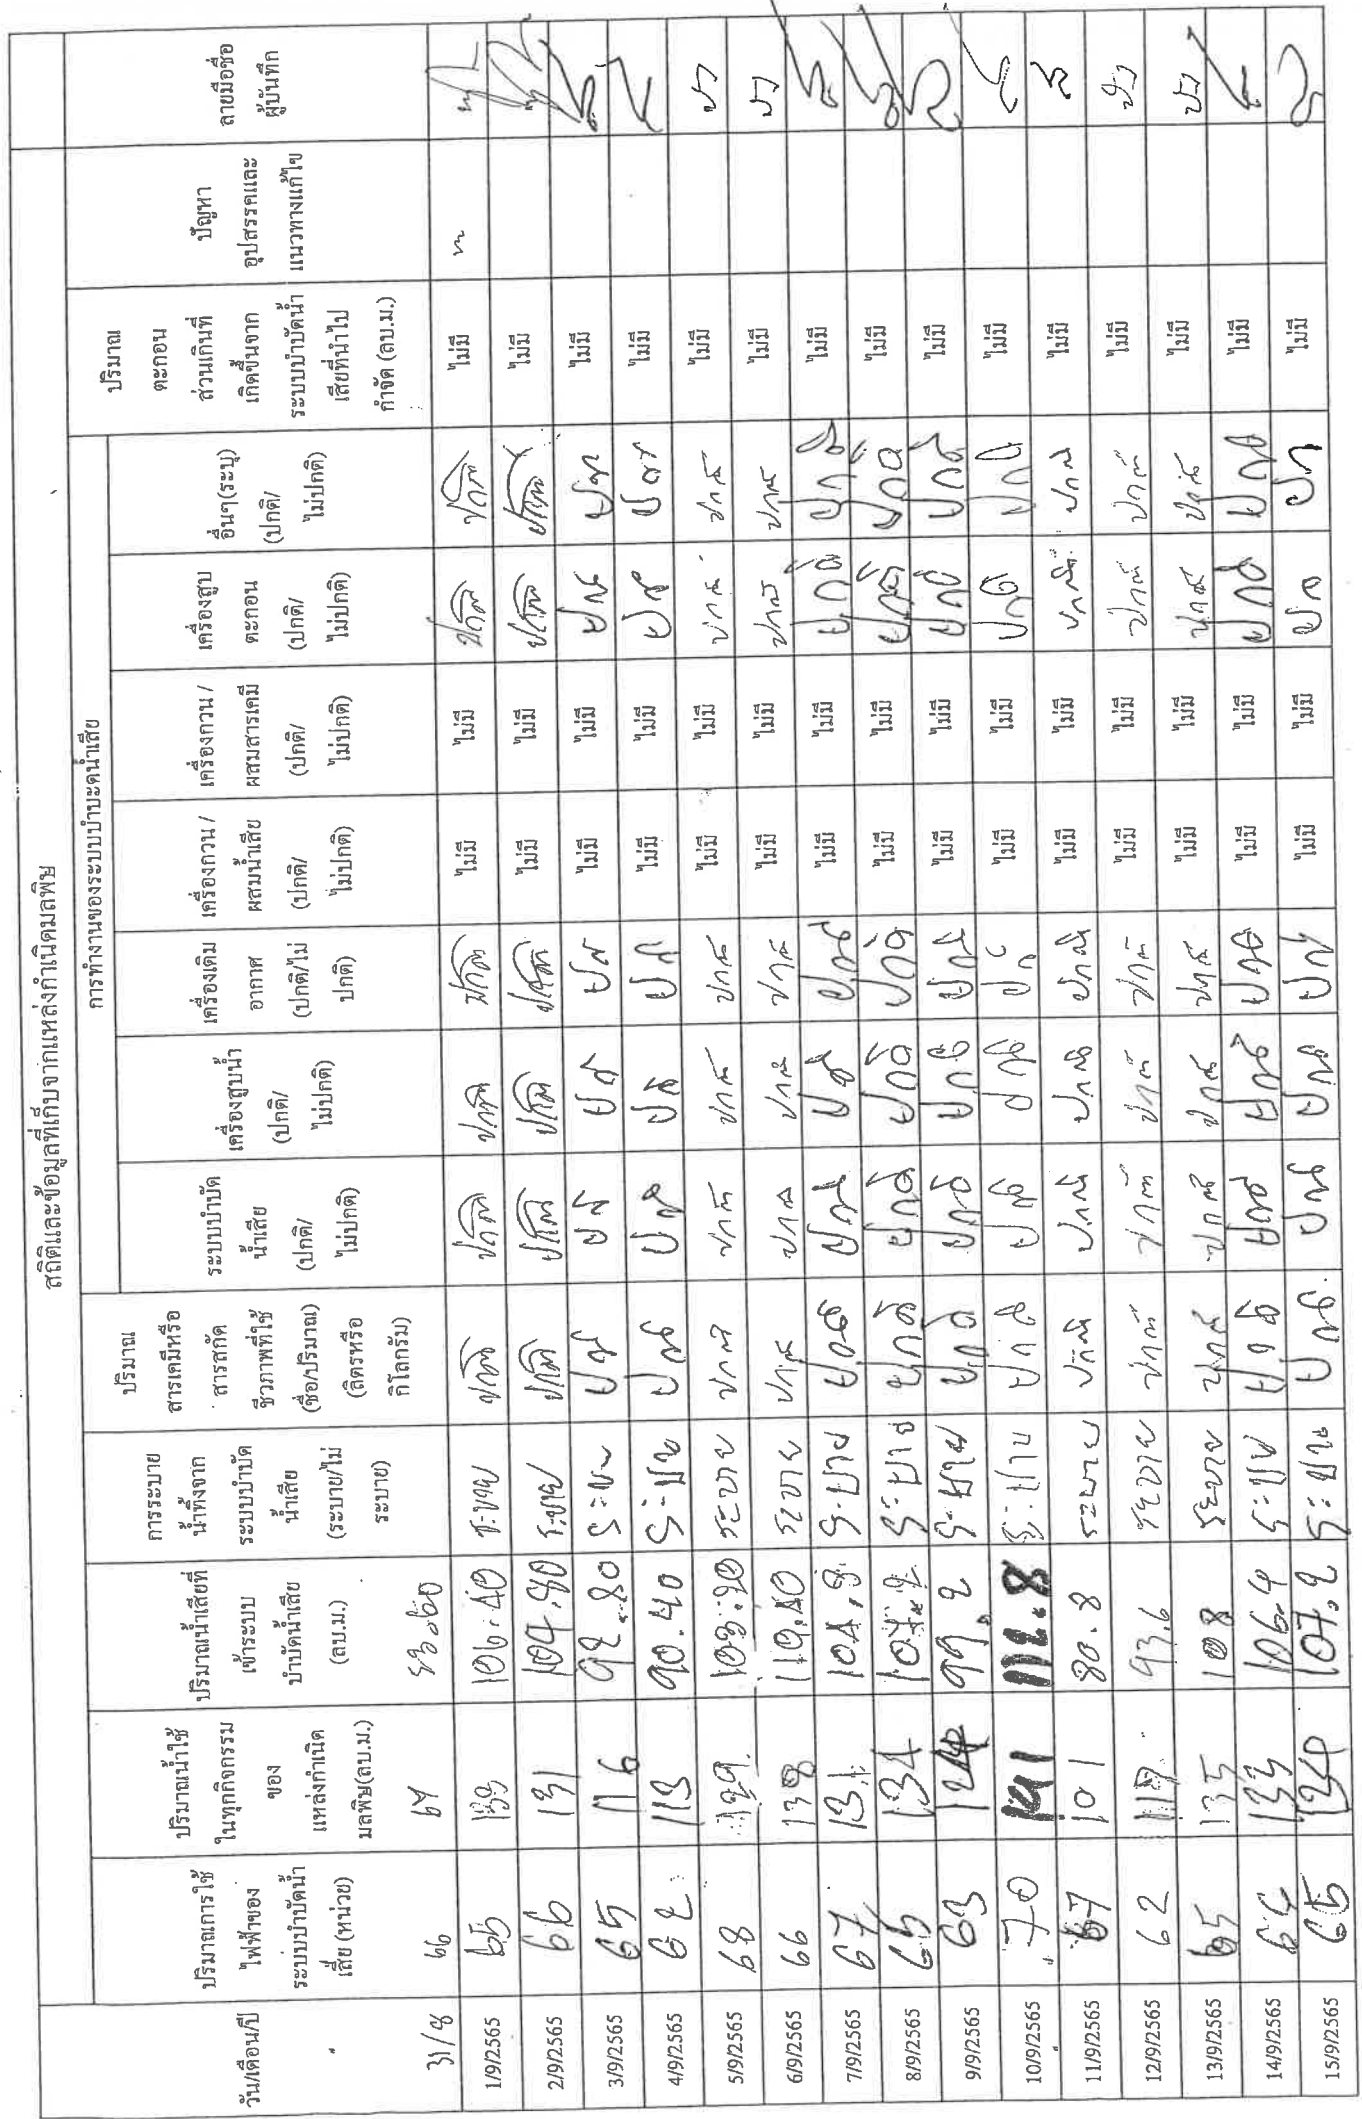 สถิติและข้อมูลที่เก็บจากแหล่งกำเนิดมลพิษ
วัน/เดือน/ปี
ปริมาณการใช้
ไฟฟ้าของ
ระบบบำบัดน้ำ
เสีย (หน่วย)
ปริมาณน้ำใช้
ในทุกกิจกรรม
ของ
แหล่งกำเนิด
มลพิษ(ลบ.ม.)
ปริมาณน้ำเสียที่
เข้าระบบ
บำบัดน้ำเสีย
(ลบ.ม.)
การระบาย
น้ำทิ้งจาก
ระบบบำบัด
น้ำเสีย
(ระบาย/ไม่
ระบาย)
ปริมาณ
สารเคมีหรือ
สารสกัด
ชีวภาพที่ใช้
(ชื่อ/ปริมาณ)
(ลิตรหรือ
กิโลกรัม)
การทำงานของระบบบำบะดน้ำเสีย
ระบบบำบัด
น้ำเสีย
(ปกติ/
ไม่ปกติ)
เครื่องสูบน้ำ
(ปกติ/
ไม่ปกติ)
เครื่องเติม
อากาศ
(ปกติ/ไม่
ปกติ)
เครื่องกวน /
ผสมน้ำเสีย
(ปกติ/
ไม่ปกติ)
เครื่องกวน /
ผสมสารเคมี
(ปกติ/
ไม่ปกติ)
เครื่องสูบ
ตะกอน
(ปกติ/
ไม่ปกติ)
อื่นๆ(ระบุ)
(ปกติ/
ไม่ปกติ)
ปริมาณ
ตะกอน
ส่วนเกินที่
เกิดขึ้นจาก
ระบบบำบัดน้ำ
เสียที่นำไป
กำจัด (ลบ.ม.)
ปัญหา
อุปสรรคและ
แนวทางแก้ไข
ลายมือชื่อ
ผู้บันทึก
31/8 66 67
1/9/2565 65 106.40 ระบาย ปกติ ปกติ ปกติ ปกติ ไม่มี ไม่มี ปกติ ปกติ ไม่มี
2/9/2565 66 131 104.80 ระบาย ปกติ ปกติ ปกติ ปกติ ไม่มี ไม่มี ปกติ ปกติ ไม่มี
3/9/2565 65 116 92.80 ไม่มี ไม่มี ไม่มี
4/9/2565 62 113 90.40 ไม่มี ไม่มี ไม่มี
5/9/2565 68 129 103.20 ระบาย ปกติ ปกติ ปกติ ปกติ ไม่มี ไม่มี ปกติ ปกติ ไม่มี
6/9/2565 66 138 110.40 ระบาย ปกติ ปกติ ปกติ ปกติ ไม่มี ไม่มี ปกติ ปกติ ไม่มี
7/9/2565 67 131 104.8 ระบาย ปกติ ปกติ ปกติ ปกติ ไม่มี ไม่มี ปกติ ปกติ ไม่มี
8/9/2565 65 134 107.2 ระบาย ปกติ ปกติ ปกติ ปกติ ไม่มี ไม่มี ปกติ ปกติ ไม่มี
9/9/2565 63 124 99.2 ระบาย ปกติ ปกติ ปกติ ปกติ ไม่มี ไม่มี ปกติ ปกติ ไม่มี
10/9/2565 70 141 112.8 ระบาย ปกติ ปกติ ปกติ ไม่มี ไม่มี ปกติ ปกติ ไม่มี
11/9/2565 67 101 80.8 ระบาย ปกติ ปกติ ปกติ ปกติ ไม่มี ไม่มี ปกติ ปกติ ไม่มี
12/9/2565 62 117 93.6 ระบาย ปกติ ปกติ ปกติ ปกติ ไม่มี ไม่มี ปกติ ปกติ ไม่มี
13/9/2565 65 135 108 ระบาย ปกติ ปกติ ปกติ ปกติ ไม่มี ไม่มี ปกติ ปกติ ไม่มี
14/9/2565 64 133 106.4 ปกติ ปกติ ปกติ ปกติ ไม่มี ไม่มี ปกติ ปกติ ไม่มี
15/9/2565 65 134 107.2 ปกติ ปกติ ปกติ ไม่มี ไม่มี ไม่มี